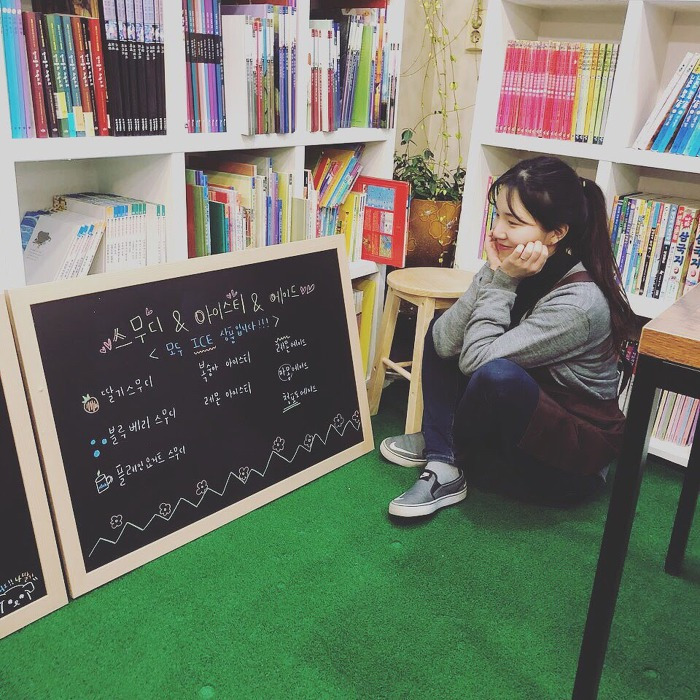 스무디 & 아이스티 & 에이드
< 모두 ICE 상품입니다!!! >
딸기스무디
블루베리 스무디
플레인요거트 스무디
복숭아 아이스티
레몬 아이스티
레몬에이드
자몽에이드
청포도에이드
삼국지